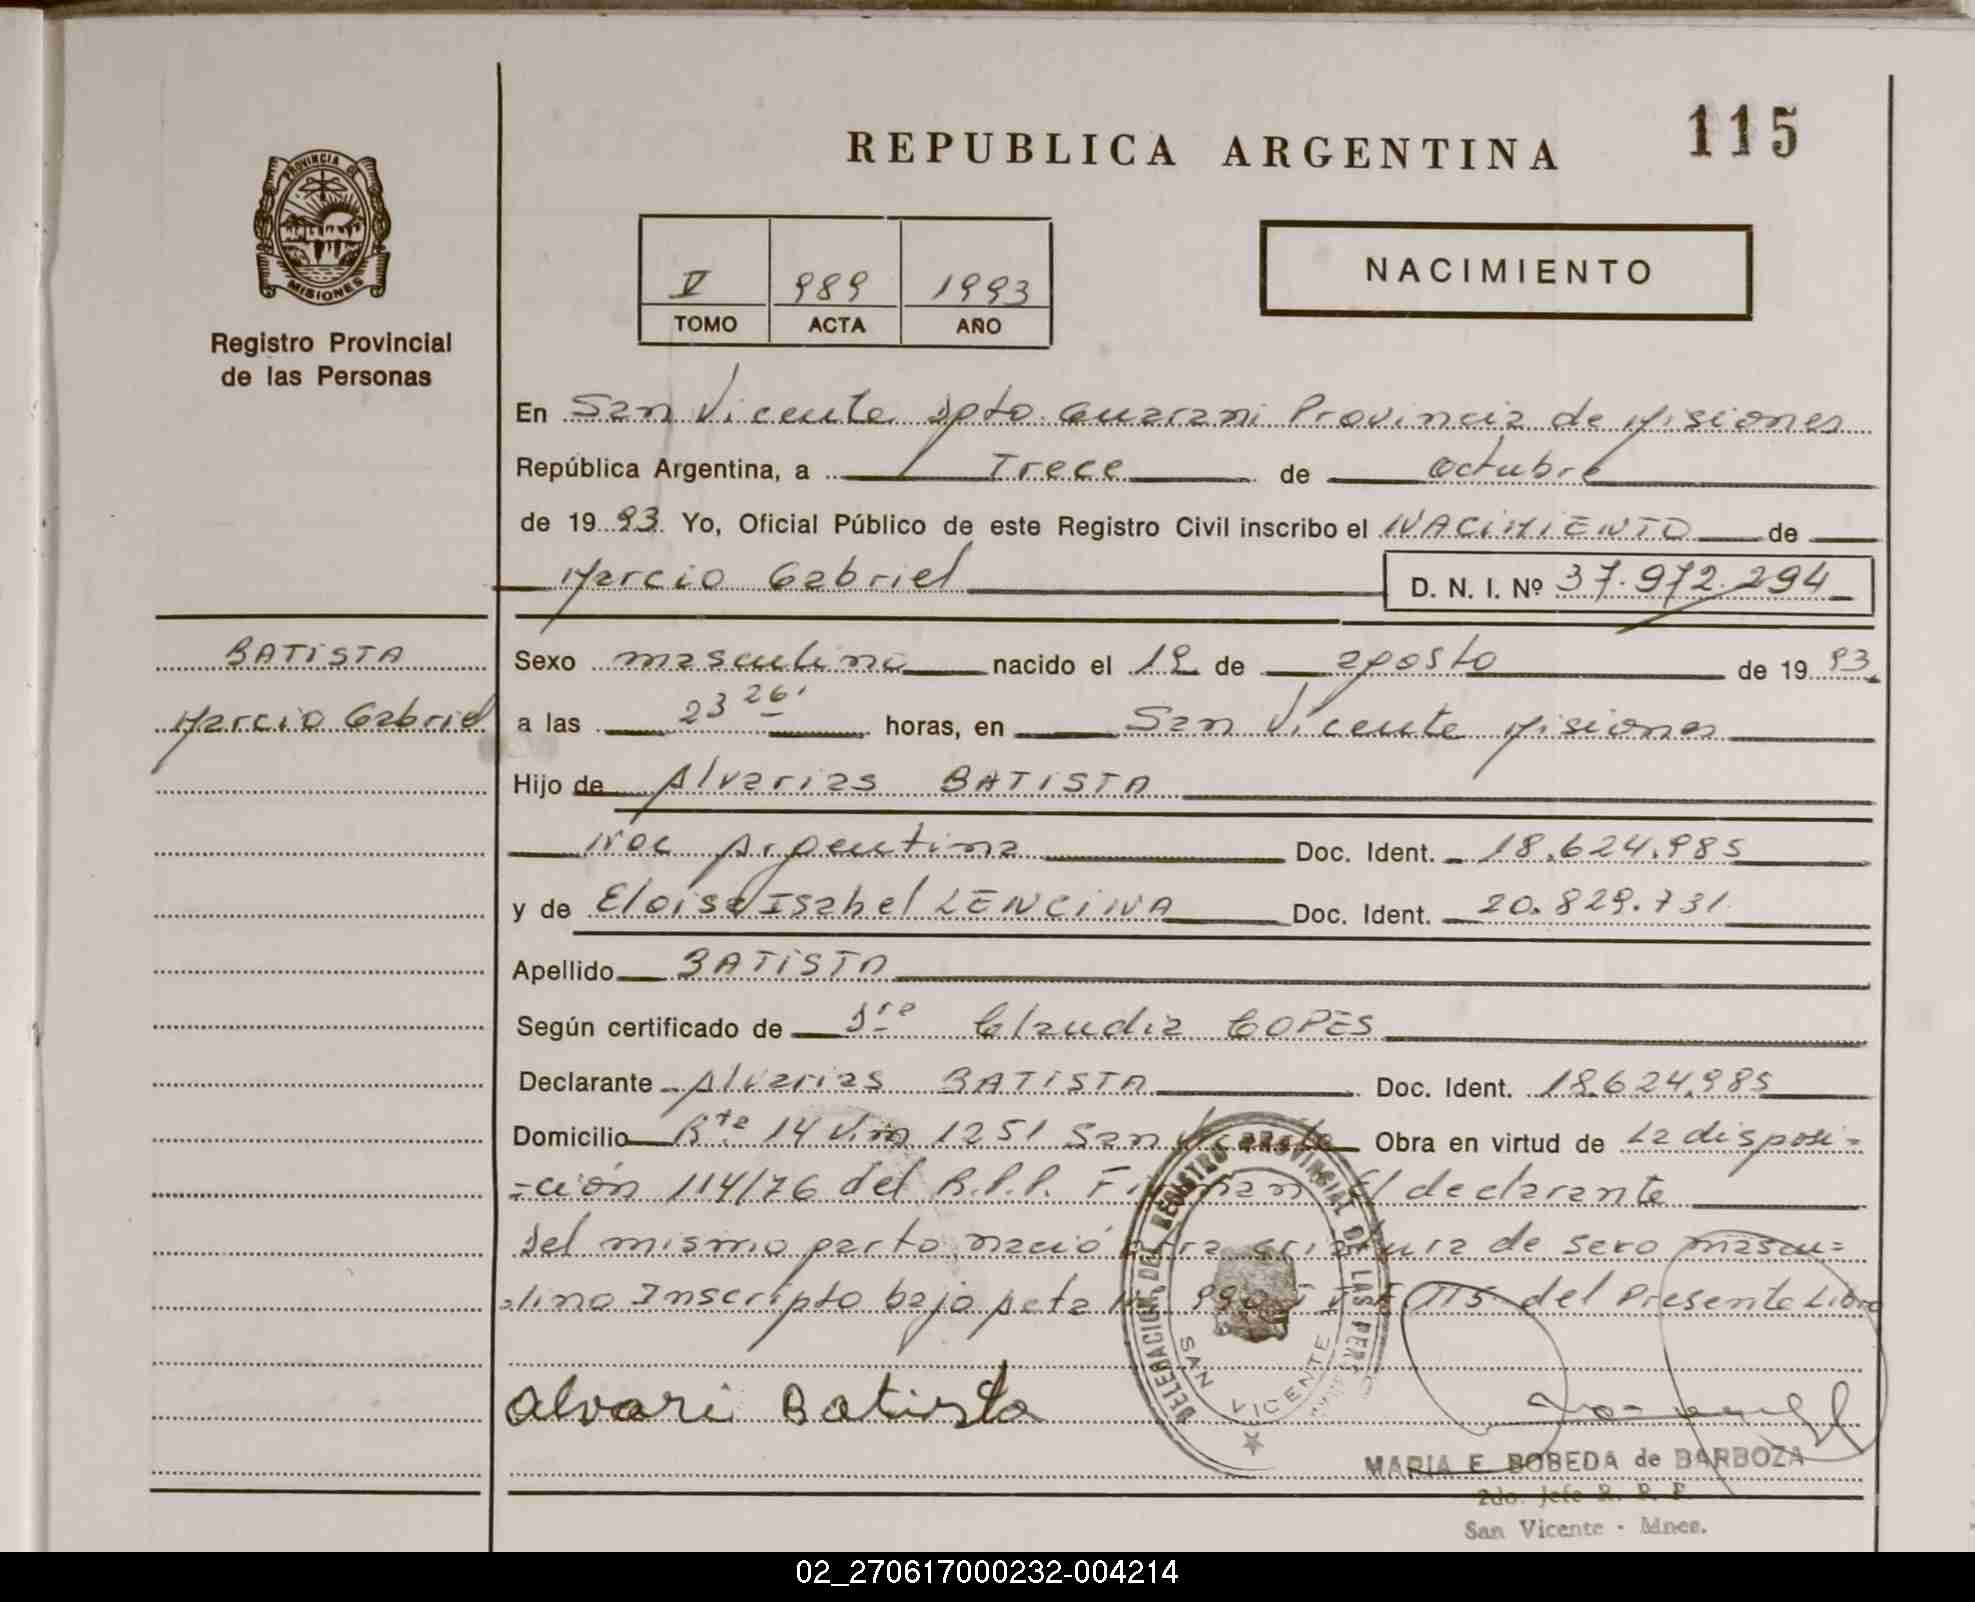 REPUBLICA ARGENTINA
115
PROVINCIA DE
MISIONES
Registro Provincial
de las Personas
V 989 1993
TOMO ACTA AÑO
NACIMIENTO
En San Vicente Dpto. Guarani Provincia de Misiones
República Argentina, a Trece de octubre
de 1993. Yo, Oficial Público de este Registro Civil inscribo el NACIMIENTO de
Marcio Gabriel D. N. I. Nº 37.972.294
BATISTA
Marcio Gabriel
Sexo masculino nacido el 19 de agosto de 1993
a las 23 26' horas, en San Vicente Misiones
Hijo de Alvarias BATISTA
Nac Argentina Doc. Ident. 18.624.985
y de Eloisa Isabel LENCINA Doc. Ident. 20.829.731
Apellido BATISTA
Según certificado de Dra Claudia COPES
Declarante Alvarias BATISTA Doc. Ident. 18.624.985
Domicilio Rta 14 Km 1251 San Vicente Obra en virtud de La disposi=
=ción 114/76 del R.P.P. Firman El declarante
Del mismo parto nació otra criatura de sexo mascu=
=lino Inscripto bajo Acta 990 T V F 115 del Presente Libro
Alvari Batista
DELEGACION DEL REGISTRO PROVINCIAL DE LAS PERS
SAN VICENTE
MARIA E. BOBEDA de BARBOZA
2do. Jefe R. P. P.
San Vicente - Mnes.
02_270617000232-004214